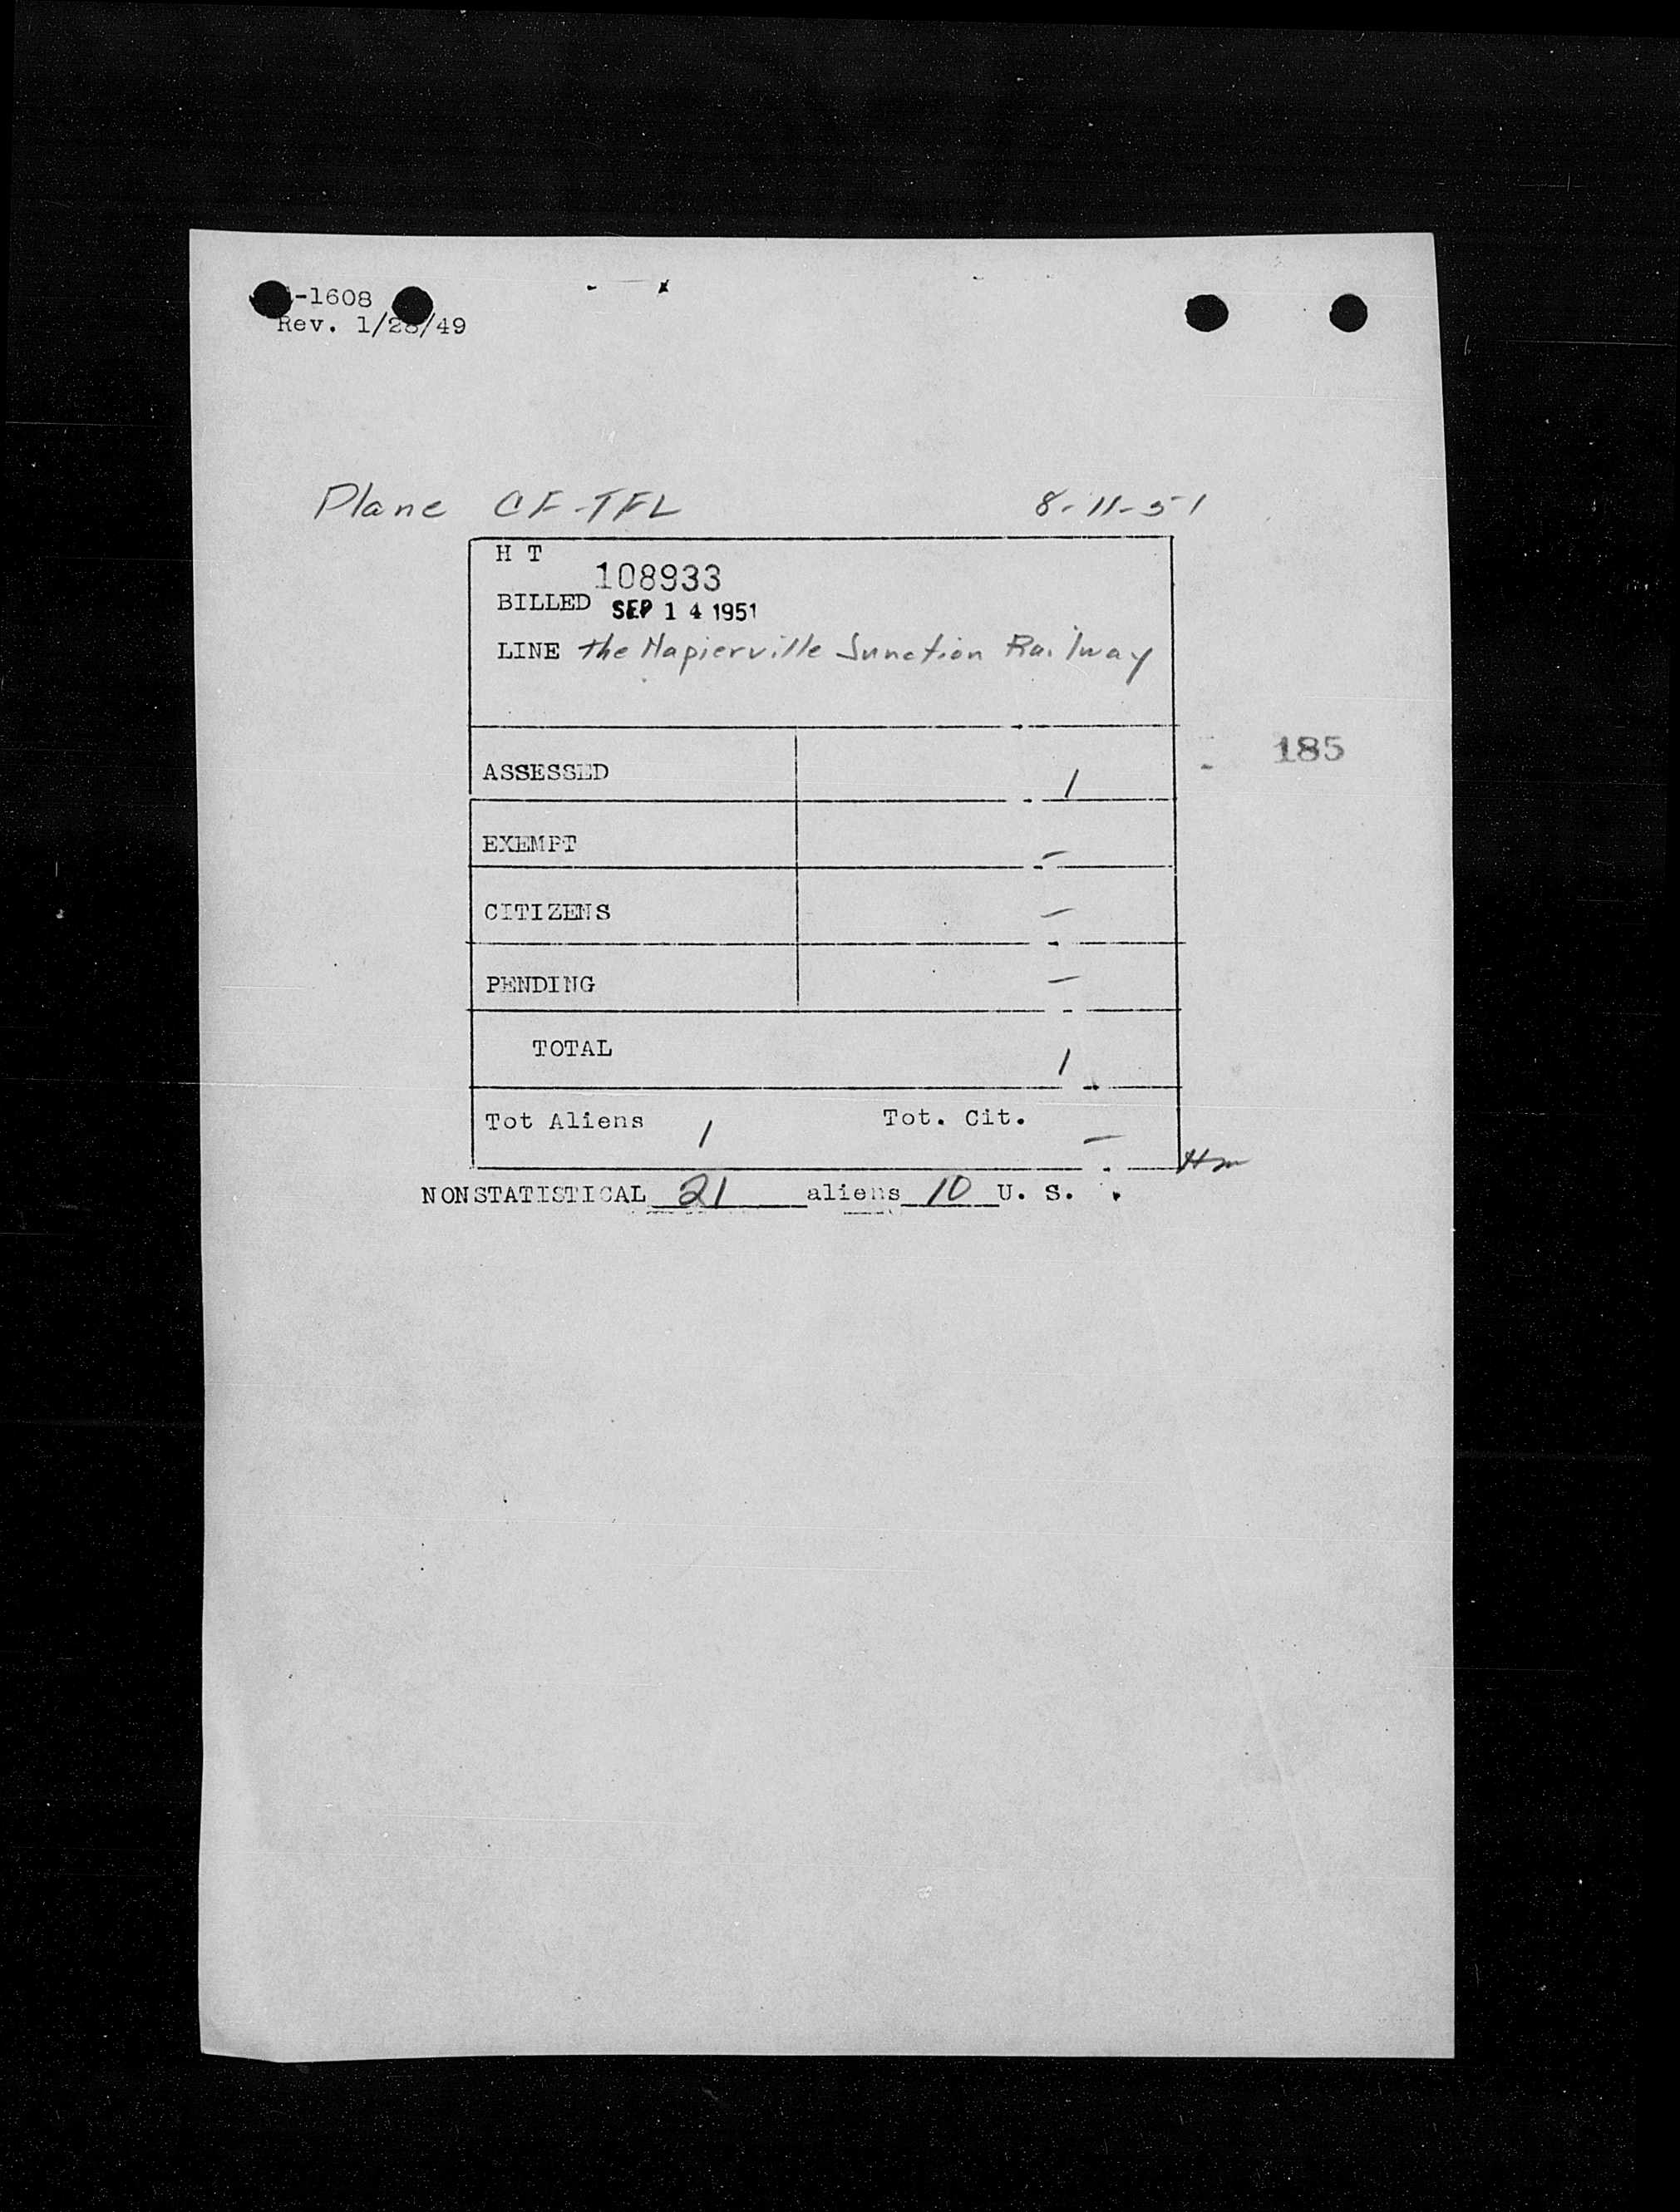 -1608
Rev. 1/28/49
Plane CF-TFL 8-11-51
H T
108933
BILLED SEP 14 1951
LINE the Napierville Junction Railway
185
ASSESSED 1
EXEMPT -
CITIZENS -
PENDING -
TOTAL 1
Tot Aliens 1 Tot. Cit. -
Hm
NONSTATISTICAL 21 aliens 10 U. S.